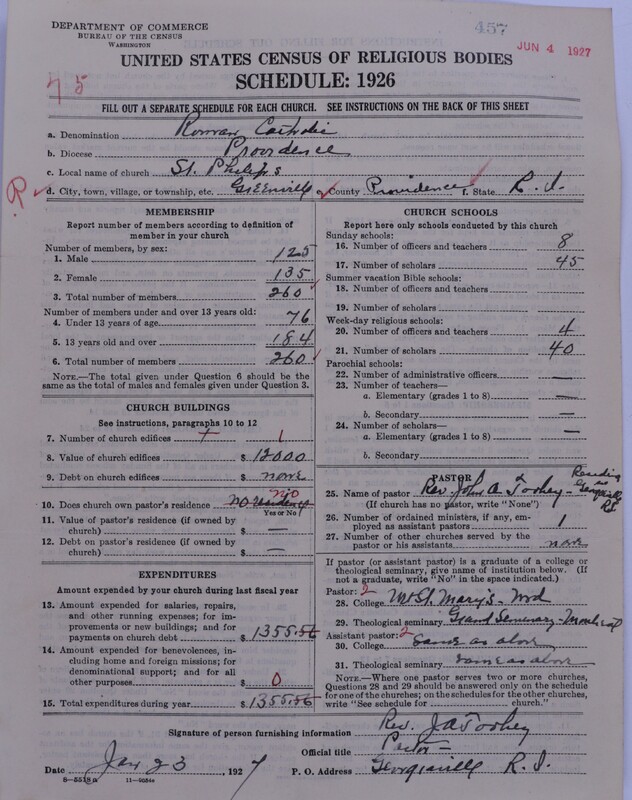 DEPARTMENT OF COMMERCE
BUREAU OF THE CENSUS
WASHINGTON
457
JUN 4 1927
UNITED STATES CENSUS OF RELIGIOUS BODIES
SCHEDULE: 1926
75
FILL OUT A SEPARATE SCHEDULE FOR EACH CHURCH. SEE INSTRUCTIONS ON THE BACK OF THIS SHEET
a. Denomination Roman Catholic
b. Diocese Providence
c. Local name of church St. Philip's
R
d. City, town, village, or township, etc. Greenville e. County Providence f. State R. I.
MEMBERSHIP
Report number of members according to definition of member in your church
Number of members, by sex:
1. Male 125
2. Female 135
3. Total number of members 260
Number of members under and over 13 years old:
4. Under 13 years of age 76
5. 13 years old and over 184
6. Total number of members 260
NOTE.—The total given under Question 6 should be the same as the total of males and females given under Question 3.
CHURCH BUILDINGS
See instructions, paragraphs 10 to 12
7. Number of church edifices 1
8. Value of church edifices $ 12000
9. Debt on church edifices $ none
10. Does church own pastor's residence no residence no
Yes or No
11. Value of pastor's residence (if owned by church) $ —
12. Debt on pastor's residence (if owned by church) $ —
EXPENDITURES
Amount expended by your church during last fiscal year
13. Amount expended for salaries, repairs, and other running expenses; for improvements or new buildings; and for payments on church debt $ 1355.56
14. Amount expended for benevolences, including home and foreign missions; for denominational support; and for all other purposes $ 0
15. Total expenditures during year $ 1355.56
CHURCH SCHOOLS
Report here only schools conducted by this church
Sunday schools:
16. Number of officers and teachers 8
17. Number of scholars 45
Summer vacation Bible schools:
18. Number of officers and teachers
19. Number of scholars
Week-day religious schools:
20. Number of officers and teachers 4
21. Number of scholars 40
Parochial schools:
22. Number of administrative officers —
23. Number of teachers—
a. Elementary (grades 1 to 8) —
b. Secondary —
24. Number of scholars—
a. Elementary (grades 1 to 8) —
b. Secondary
PASTOR
25. Name of pastor Rev. John A. Toohey - Residing in Georgiaville R.I.
(If church has no pastor, write "None")
26. Number of ordained ministers, if any, employed as assistant pastors 1
27. Number of other churches served by the pastor or his assistants none
If pastor (or assistant pastor) is a graduate of a college or theological seminary, give name of institution below. (If not a graduate, write "No" in the space indicated.)
Pastor: 2
28. College Mt St. Mary's - Md
29. Theological seminary Grand Seminary - Montreal
Assistant pastor: 2
30. College Same as above
31. Theological seminary same as above
NOTE.—Where one pastor serves two or more churches, Questions 28 and 29 should be answered only on the schedule for one of the churches; on the schedules for the other churches, write "See schedule for church."
Signature of person furnishing information Rev. J A Toohey
Official title Pastor
Date Jan 23, 1927 P. O. Address Georgiaville R. I.
8—5518 a 11—9584